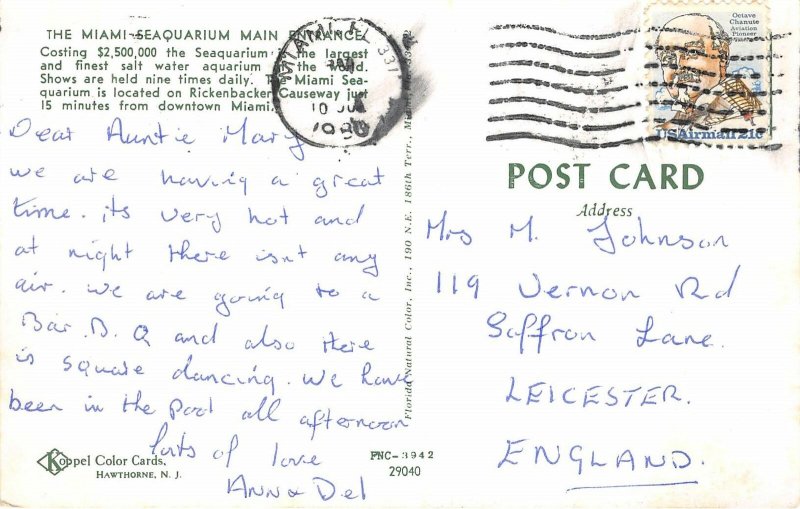 THE MIAMI SEAQUARIUM MAIN ENTRANCE
Costing $2,500,000 the Seaquarium is the largest
and finest salt water aquarium in the world.
Shows are held nine times daily. The Miami Sea-
quarium is located on Rickenbacker Causeway just
15 minutes from downtown Miami.
MIAMI, FL 331
PM
10 JUL
1980
Octave
Chanute
Aviation
Pioneer
USAirmail 21c
Dear Auntie Mary
we are having a great
time. its very hot and
at night there isnt any
air. we are going to a
Bar. B. Q and also there
is square dancing. We have
been in the pool all afternoon
lots of love
Ann & Del
Florida Natural Color, Inc., 190 N.E. 186th Terr., Miami, Fla.
POST CARD
Address
Mrs M. Johnson
119 Vernon Rd
Saffron Lane.
LEICESTER.
ENGLAND.
Koppel Color Cards,
HAWTHORNE, N. J.
FNC-3942
29040